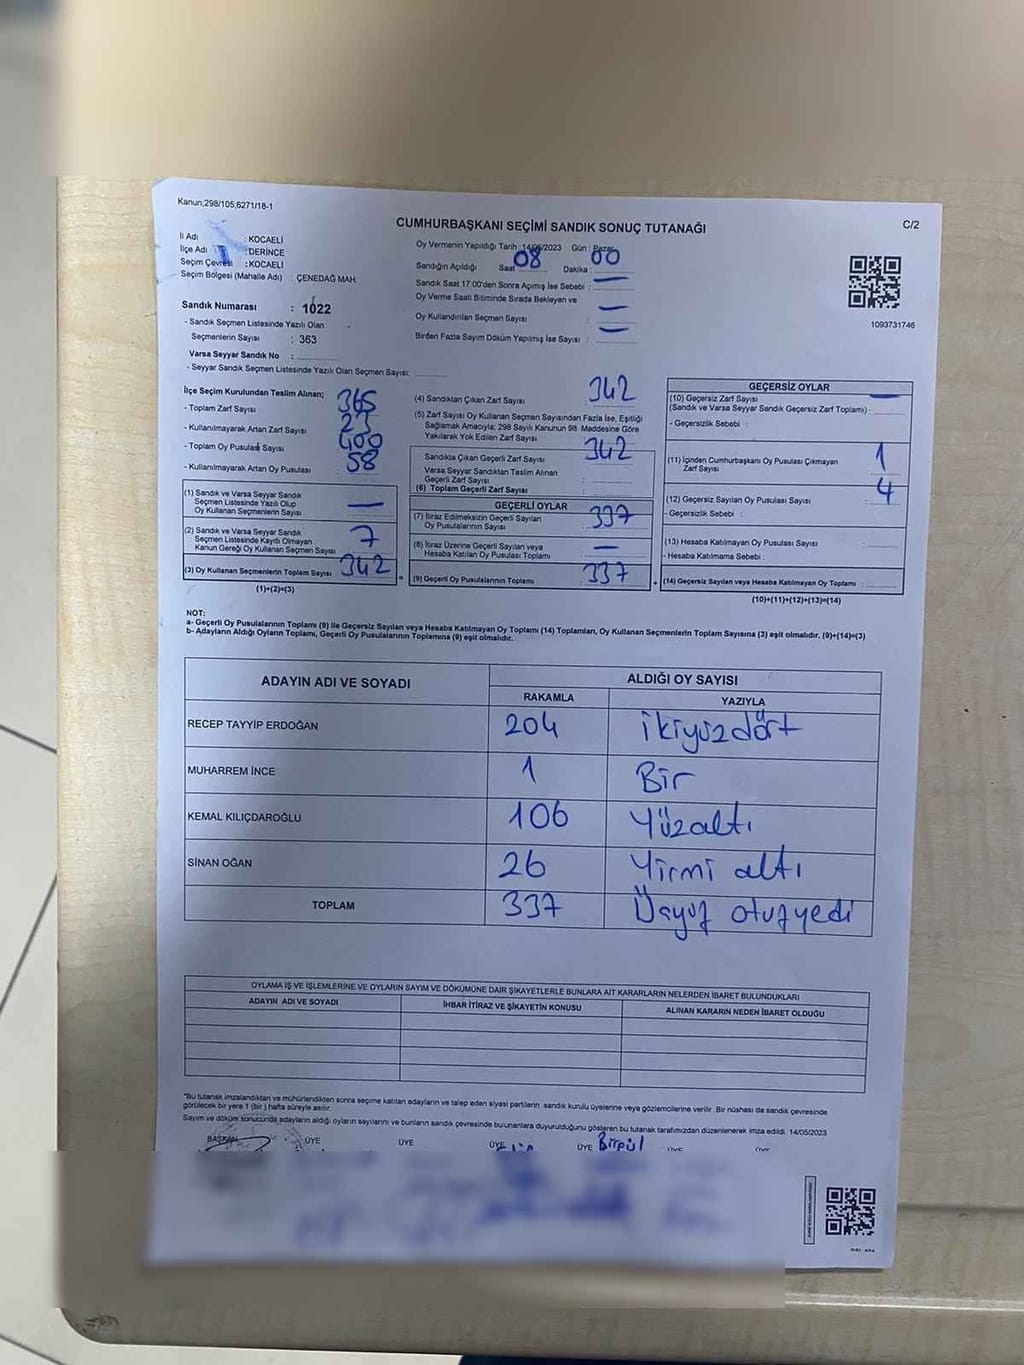 Kanun,298/105;6271/18-1
CUMHURBAŞKANI SEÇİMİ SANDIK SONUÇ TUTANAĞI
C/2
İl Adı : KOCAELİ
İlçe Adı : DERİNCE
Seçim Çevresi : KOCAELİ
Seçim Bölgesi (Mahalle Adı) : ÇENEDAĞ MAH.
Oy Vermenin Yapıldığı Tarih :14/05/2023 Gün : Pazar
Sandığın Açıldığı Saat 08 Dakika : 00
Sandık Saat 17:00'den Sonra Açımış İse Sebebi : —
Oy Verme Saati Bitiminde Sırada Bekleyen ve
Oy Kullandırılan Seçmen Sayısı : —
Birden Fazla Sayım Döküm Yapılmış İse Sayısı : —
1093731746
Sandık Numarası : 1022
- Sandık Seçmen Listesinde Yazılı Olan
Seçmenlerin Sayısı : 363
Varsa Seyyar Sandık No :
- Seyyar Sandık Seçmen Listesinde Yazılı Olan Seçmen Sayısı:
İlçe Seçim Kurulundan Teslim Alınan;
- Toplam Zarf Sayısı 365
- Kullanılmayarak Artan Zarf Sayısı 23
- Toplam Oy Pusulası Sayısı 400
- Kullanılmayarak Artan Oy Pusulası 58
(1) Sandık ve Varsa Seyyar Sandık
Seçmen Listesinde Yazılı Olup
Oy Kullanan Seçmenlerin Sayısı —
(2) Sandık ve Varsa Seyyar Sandık
Seçmen Listesinde Kayıtlı Olmayan
Kanun Gereği Oy Kullanan Seçmen Sayısı 7
(3) Oy Kullanan Seçmenlerin Toplam Sayısı 342
(1)+(2)=(3)
(4) Sandıktan Çıkan Zarf Sayısı 342
(5) Zarf Sayısı Oy Kullanan Seçmen Sayısından Fazla İse, Eşitliği
Sağlamak Amacıyla; 298 Sayılı Kanunun 98. Maddesine Göre
Yakılarak Yok Edilen Zarf Sayısı
Sandıkta Çıkan Geçerli Zarf Sayısı 342
Varsa Seyyar Sandıktan Teslim Alınan
Geçerli Zarf Sayısı :
(6) Toplam Geçerli Zarf Sayısı :
GEÇERLİ OYLAR
(7) İtiraz Edilmeksizin Geçerli Sayılan
Oy Pusulalarının Sayısı 337
(8) İtiraz Üzerine Geçerli Sayılan veya
Hesaba Katılan Oy Pusulası Toplamı —
(9) Geçerli Oy Pusulalarının Toplamı 337
GEÇERSİZ OYLAR
(10) Geçersiz Zarf Sayısı
(Sandık ve Varsa Seyyar Sandık Geçersiz Zarf Toplamı) : —
- Geçersizlik Sebebi :
(11) İçinden Cumhurbaşkanı Oy Pusulası Çıkmayan
Zarf Sayısı : 1
(12) Geçersiz Sayılan Oy Pusulası Sayısı : 4
- Geçersizlik Sebebi :
(13) Hesaba Katılmayan Oy Pusulası Sayısı :
- Hesaba Katılmama Sebebi :
(14) Geçersiz Sayılan veya Hesaba Katılmayan Oy Toplamı :
(10)+(11)+(12)+(13)=(14)
NOT:
a- Geçerli Oy Pusulalarının Toplamı (9) ile Geçersiz Sayılan veya Hesaba Katılmayan Oy Toplamı (14) Toplamları, Oy Kullanan Seçmenlerin Toplam Sayısına (3) eşit olmalıdır. (9)+(14)=(3)
b- Adayların Aldığı Oyların Toplamı, Geçerli Oy Pusulalarının Toplamına (9) eşit olmalıdır.
ADAYIN ADI VE SOYADI
ALDIĞI OY SAYISI
RAKAMLA YAZIYLA
RECEP TAYYİP ERDOĞAN 204 ikiyüzdört
MUHARREM İNCE 1 Bir
KEMAL KILIÇDAROĞLU 106 Yüzaltı
SİNAN OĞAN 26 Yirmi altı
TOPLAM 337 Üçyüz otuzyedi
OYLAMA İŞ VE İŞLEMLERİNE VE OYLARIN SAYIM VE DÖKÜMÜNE DAİR ŞİKAYETLERLE BUNLARA AİT KARARLARIN NELERDEN İBARET BULUNDUKLARI
ADAYIN ADI VE SOYADI
İHBAR İTİRAZ VE ŞİKAYETİN KONUSU
ALINAN KARARIN NEDEN İBARET OLDUĞU
*Bu tutanak imzalandıktan ve mühürlendikten sonra seçime katılan adayların ve talep eden siyasi partilerin, sandık kurulu üyelerine veya gözlemcilerine verilir. Bir nüshası da sandık çevresinde
görülecek bir yere 1 (bir) hafta süreyle asılır.
Sayım ve döküm sonucunda adayların aldığı oyların sayılarını ve bunların sandık çevresinde bulunanlara duyurulduğunu gösteren bu tutanak tarafımızdan düzenlenerek imza edildi. 14/05/2023
BAŞKAN ÜYE ÜYE ÜYE ÜYE Birgül ÜYE ÜYE